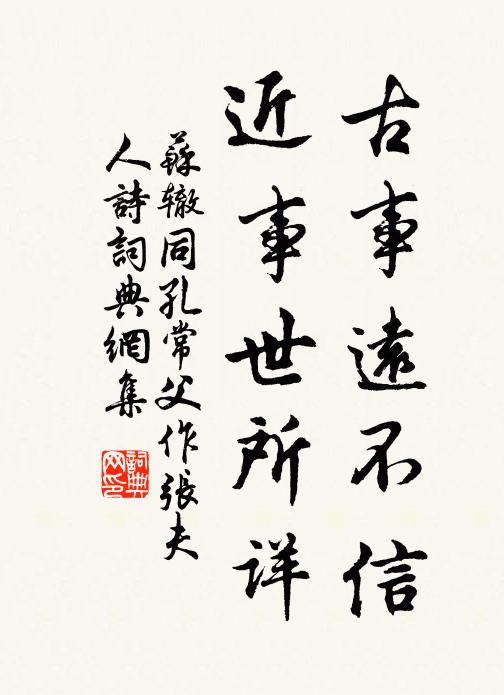 古事遠不信
近事世所详
蘇辙同孔常父作張夫
人詩詞典網集
詞典网印